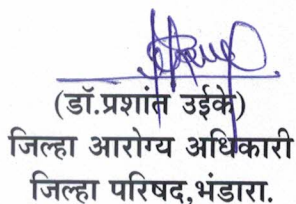 (डॉ.प्रशांत उईके)
जिल्हा आरोग्य अधिकारी
जिल्हा परिषद,भंडारा.